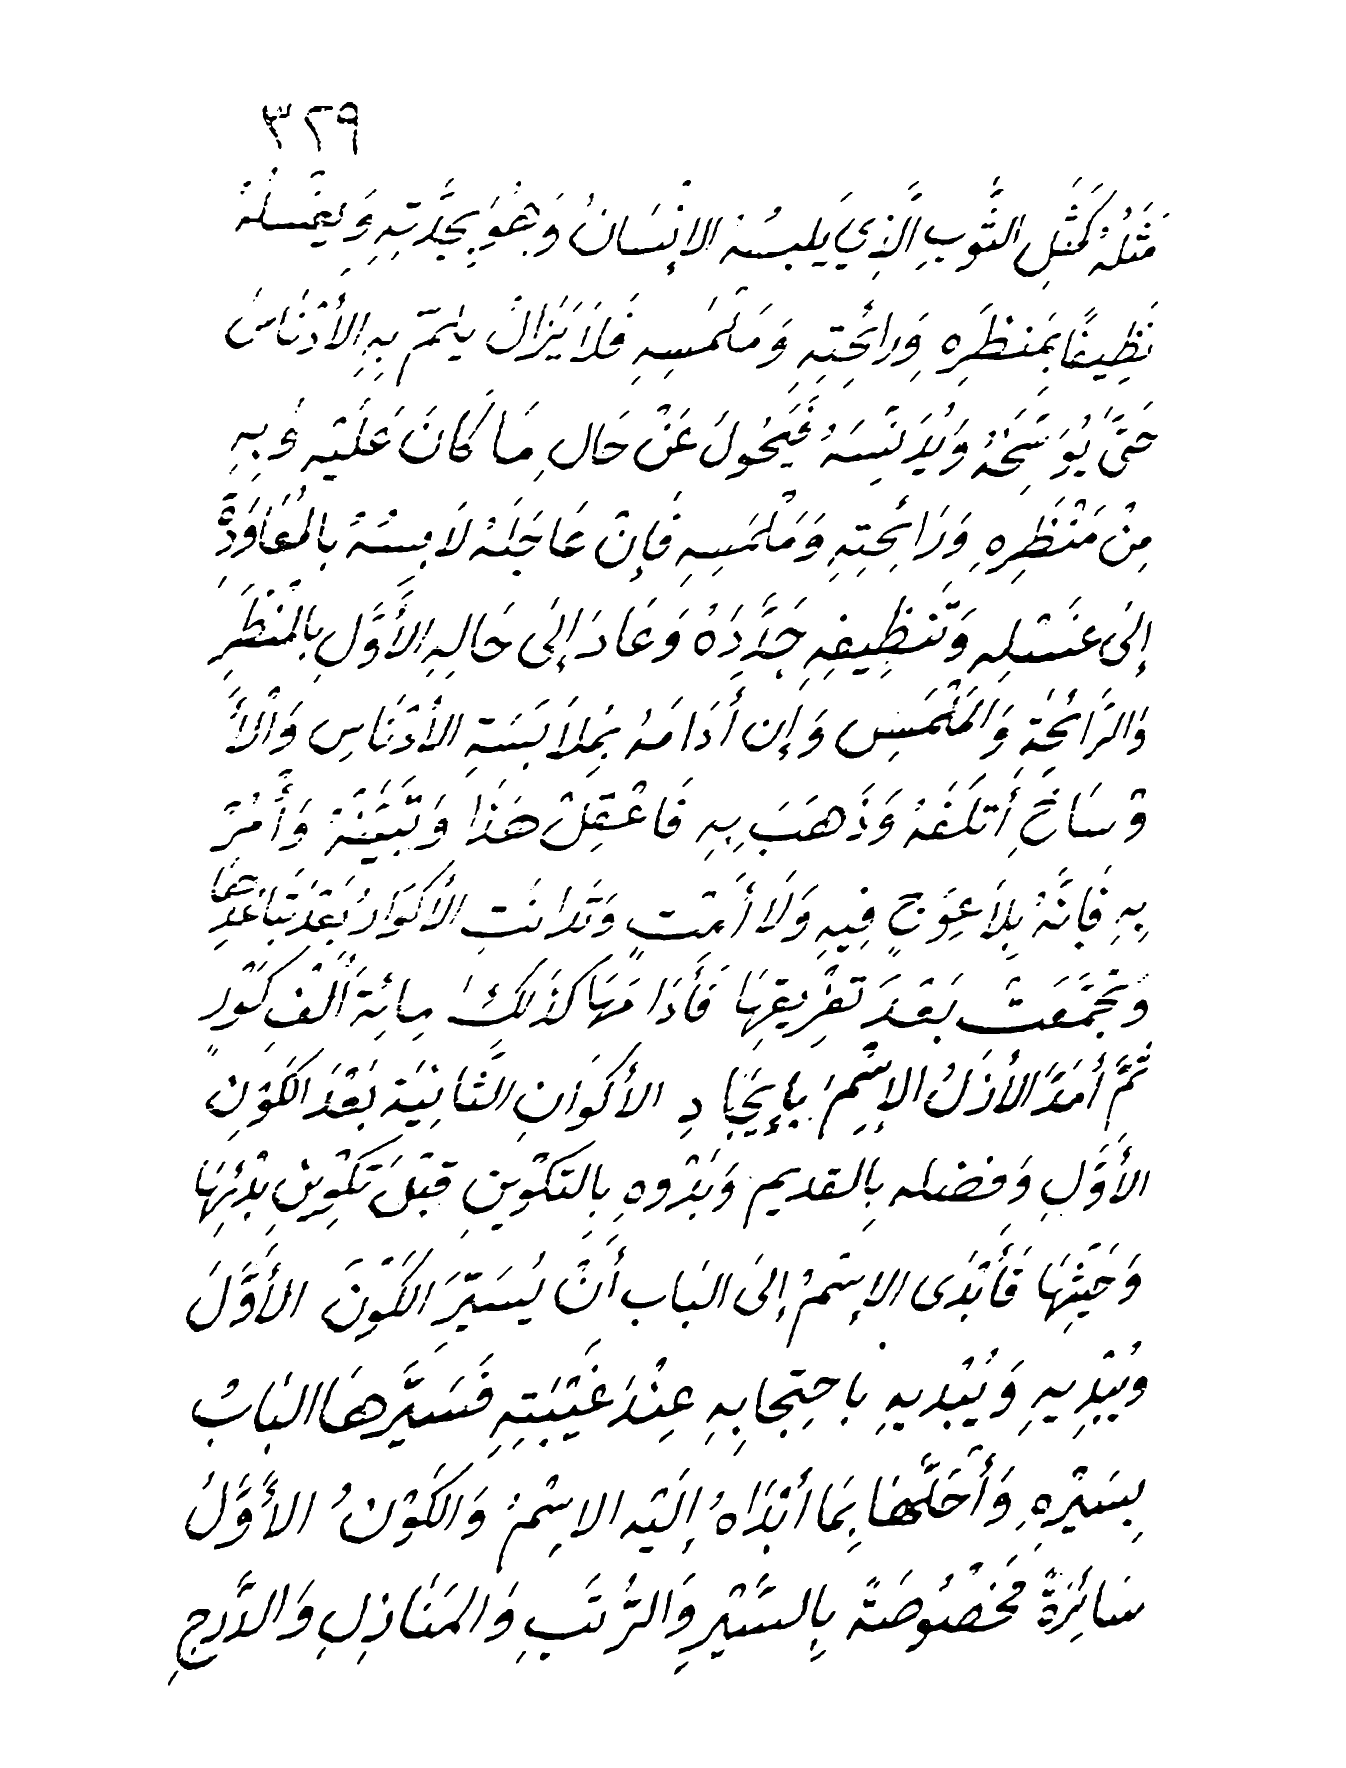 ٣٢٩
مَثَلُهُ كَمَثَلِ الثَّوبِ الَّذِي يَلبسُهُ الإنْسَانُ وَهُوَ بِجِدَّتِهِ وَيَغْسلُهُ
نَظِيفًا بِمَنظَرِهِ وَرائِحَتِهِ وَمَلْمَسِهِ فَلاَ يَزَالُ يلمّ بِهِ الأَدْنَاسُ
حَتَّى يُوَسِّخَهُ وَيُدَنِّسَهُ فَيَحُولَ عَنْ حَالِ مَا كَانَ عَلَيْهِ وَبِهِ
مِنْ مَنْظَرِهِ وَرَائِحَتِهِ وَمَلْمَسِهِ فَإِنْ عَاجَلَهُ لَابِسُهُ بِالْمُعَاوَدَةِ
إِلَى غَسْلِهِ وَتَنظِيفِهِ جَدَّدَهُ وَعَادَ إِلَى حَالِهِ الأَوَّلِ بِالْمَنْظَرِ
وَالرَّائِحَةِ وَالمَلْمَسِ وَإِن أَدَامَهُ بِمُلاَبَسَةِ الأَدْنَاسِ وَالْأَ
وْسَاخِ أَتلَفَهُ وَذَهَبَ بِهِ فَاعْقِلْ هَذَا وَتَبَيَّنْهُ وَأْمُرْ
بِهِ فَإِنَّهُ بِلاَ عِوَجٍ فِيهِ وَلَا أَمْتٍ وَتَدَانَتِ الأَكْوَارُ بَعْدَ تَبَاعُدِهَا
وَتَجَمَّعَتْ بَعْدَ تَفْرِيقِهَا فَأَدَامَهَا كَذَلِكَ مِائَةَ أَلْفِ كَوْرٍ
ثُمَّ أَمَدَّ الأَزَلُ الإِسْمَ بِإِيْجَادِ الأَكوَانِ الثَّانِيَة بَعْدَ الكَوْنِ
الأَوَّلِ وَفضله بِالقديم وَبَدْوهِ بِالتَكْوِينِ قَبْلَ تَكْوِينِ بَدْئِهَا
وَحَيْثِهَا فَأَبْدَى الإِسْمُ إِلَى البَاب أَنْ يُسَيِّرَ الكَوْنَ الأَوَّلَ
وَيُبْدِيهِ وَيُبْدِيهِ بِاحتِجَابِهِ عِنْدَ غَيْبَتِهِ فَسَيَّرَهَا البَابُ
بِسَيْرِهِ وَأَحَلَّهَا بِمَا أَبْدَاهُ إِلَيْهِ الاِسْمُ وَالكَوْنُ الأَوَّلُ
سَائِرَةً مَخْصُوصَةً بِالسَّيْرِ وَالرُّتَبِ وَالمَنَازِلِ وَالدَّرجِ